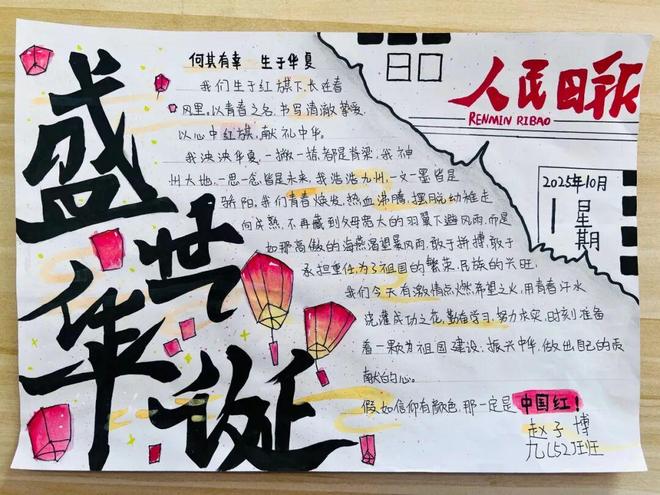 盛世华诞
何其有幸 生于华夏
我们生于红旗下,长在春
风里。以青春之名,书写清澈挚爱,
以心中红旗,献礼中华。
我泱泱华夏,一撇一捺,都是脊梁,我神
州大地,一思一念,皆是未来,我浩浩九州,一文一墨皆是
骄阳,我们青春焕发,热血沸腾,摆脱幼稚走
向成熟,不再藏到父母宽大的羽翼下避风雨,而是
如那高傲的海燕渴望暴风雨,敢于拼搏,敢于
承担重任,为了祖国的繁荣,民族的兴旺,
我们今天有激情点燃希望之火,用青春汗水
浇灌成功之花,勤奋学习,努力求实,时刻准备
着一颗为祖国建设,振兴中华,做出自己的贡
献的心。
假如信仰有颜色,那一定是中国红!
赵子博
九(52)班
日口
人民日报
RENMIN RIBAO
2025年10月
1
星期